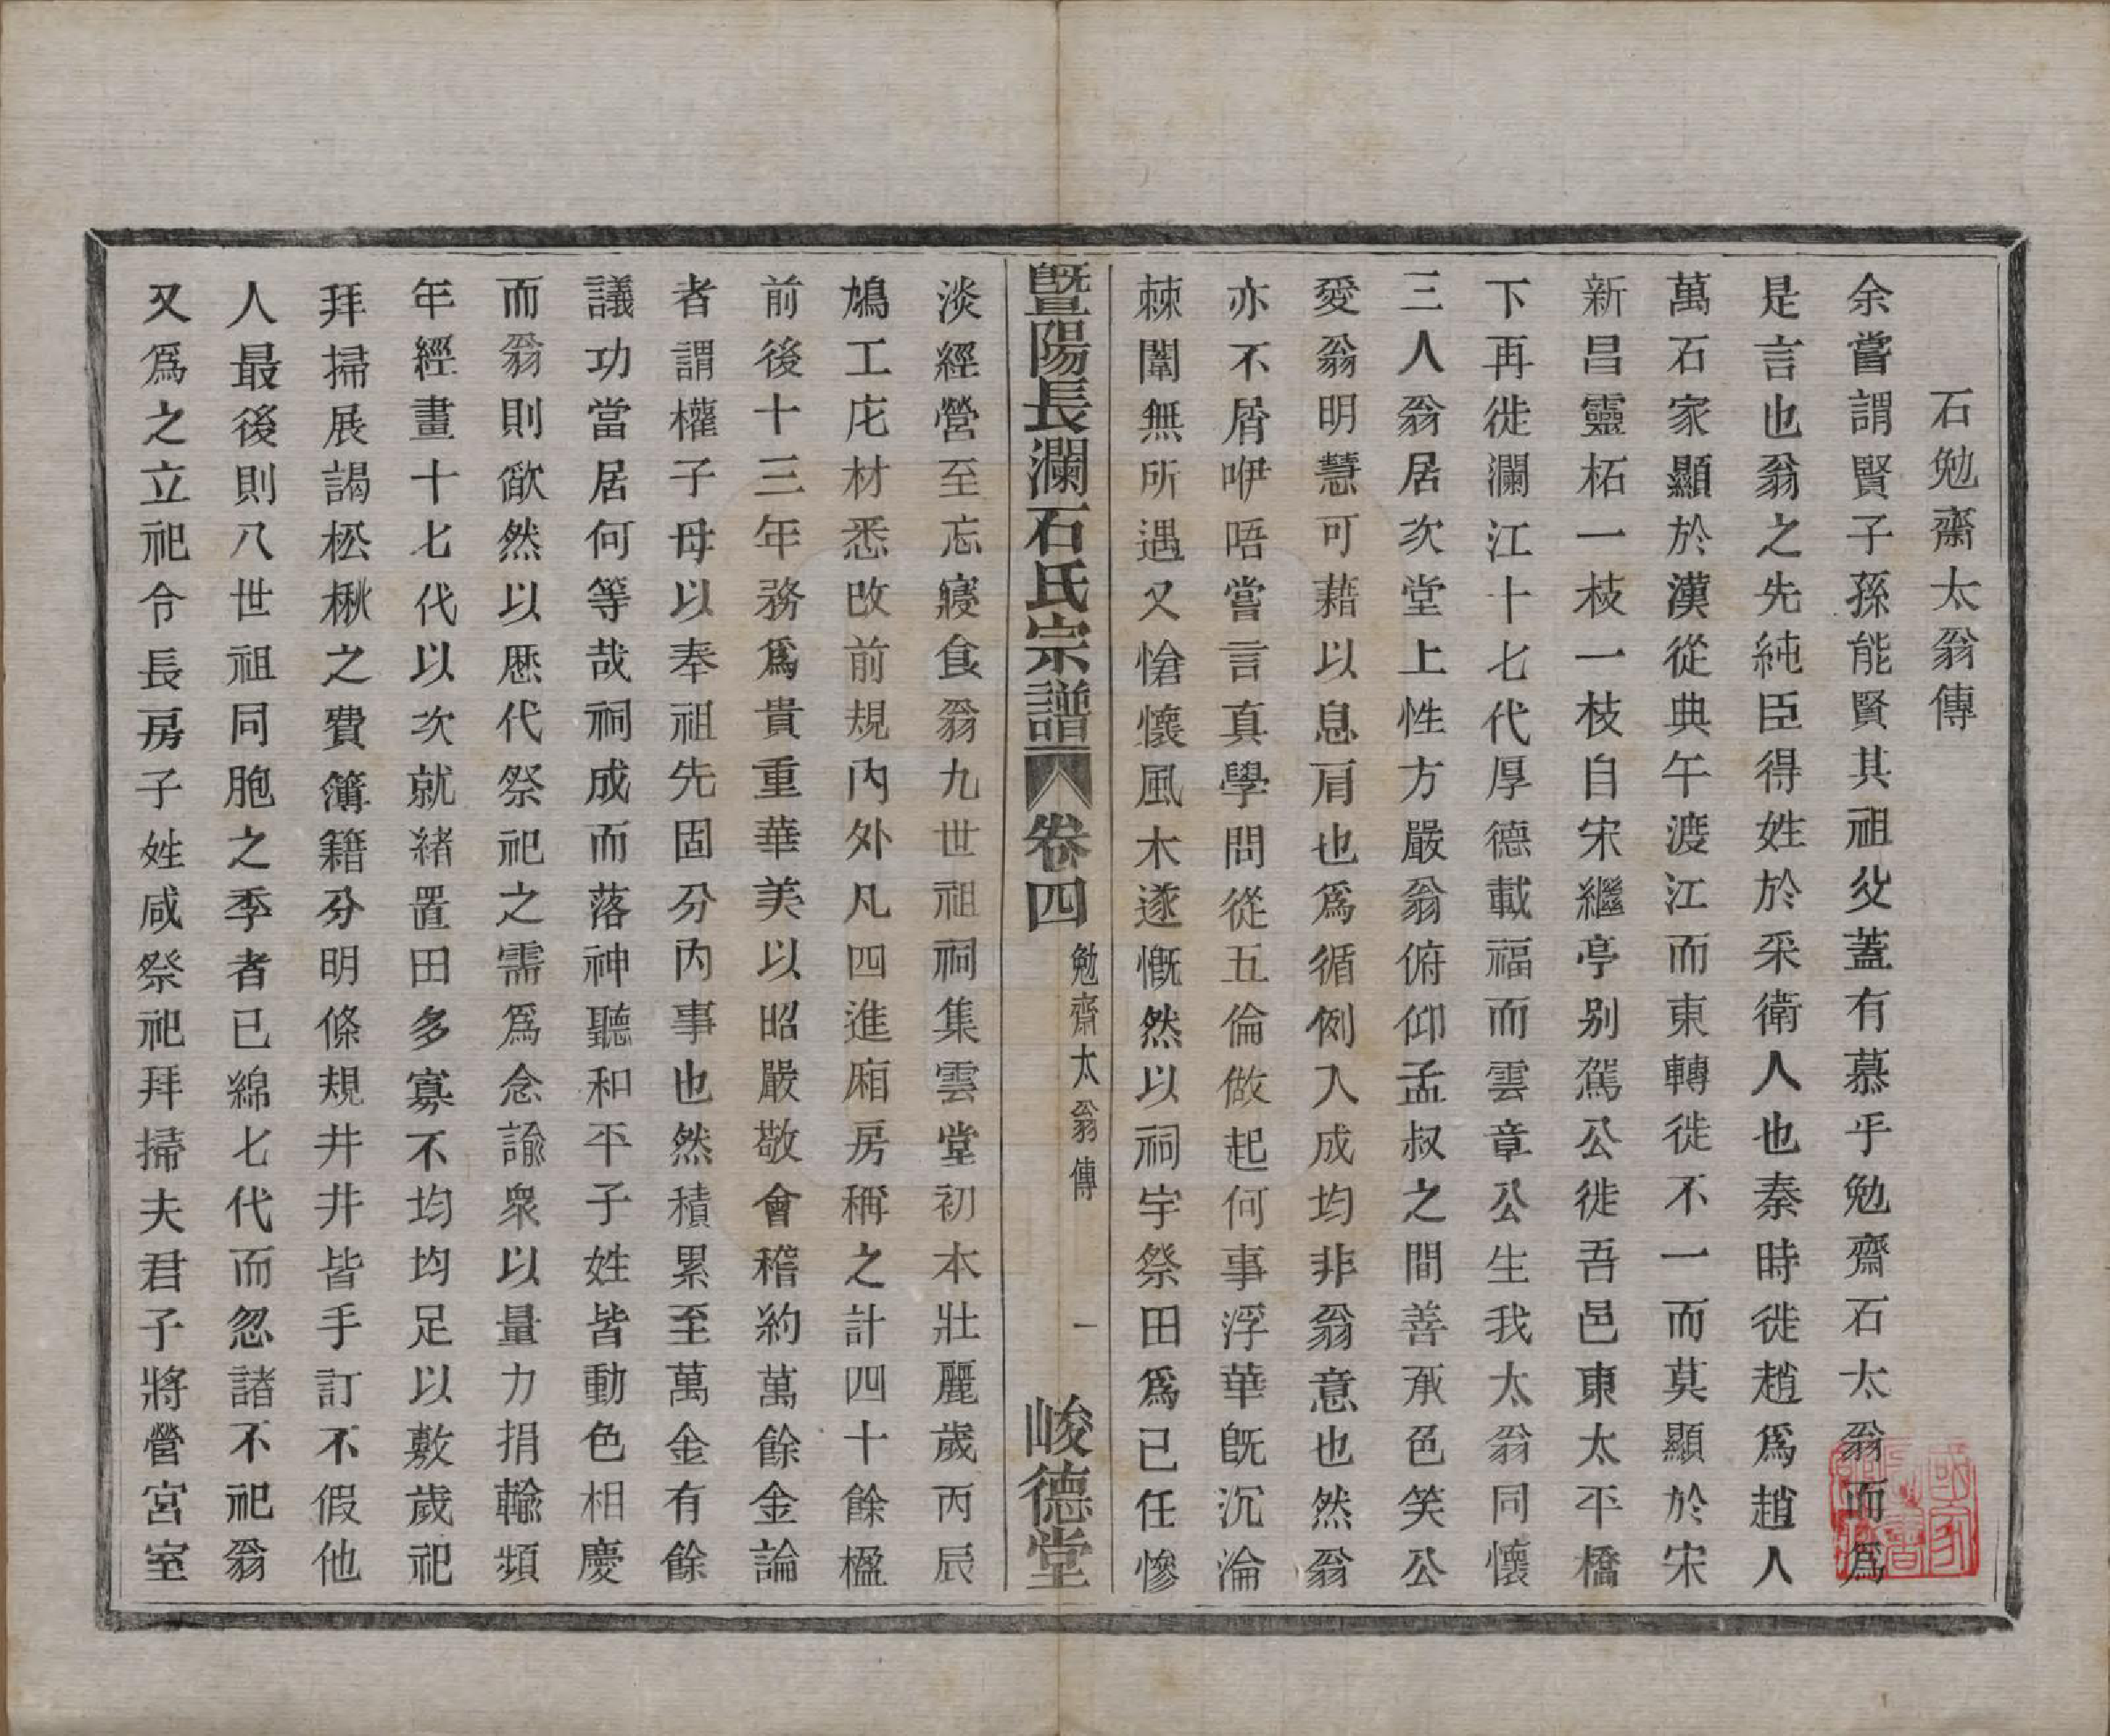 石勉齋太翁傳
余嘗謂賢子孫能賢其祖父蓋有慕乎勉齋石太翁而爲
是言也翁之先純臣得姓於采衛人也秦時徙趙爲趙人
萬石家顯於漢從典午渡江而東轉徙不一而莫顯於宋
新昌靈柘一枝一枝自宋繼亭别駕公徙吾邑東太平橋
下再徙瀾江十七代厚德載福而雲章公生我太翁同懷
三人翁居次堂上性方嚴翁俯仰孟叔之間善承色笑公
愛翁明慧可藉以息肩也爲循例入成均非翁意也然翁
亦不屑咿唔嘗言真學問從五倫做起何事浮華旣沉淪
棘闈無所遇又愴懷風木遂慨然以祠宇祭田爲已任慘
暨陽長瀾石氏宗譜 卷四 勉齋太翁傳 一 峻德堂
淡經營至忘寢食翁九世祖祠集雲堂初本壯麗歲丙辰
鳩工庀材悉改前規内外凡四進廂房稱之計四十餘楹
前後十三年務爲貴重華美以昭嚴敬會稽約萬餘金論
者謂權子母以奉祖先固分内事也然積累至萬金有餘
議功當居何等哉祠成而落神聽和平子姓皆動色相慶
而翁則歉然以歷代祭祀之需爲念諭衆以量力捐輸頻
年經畫十七代以次就緒置田多寡不均均足以敷歲祀
拜掃展謁松楸之費簿籍分明條規井井皆手訂不假他
人最後則八世祖同胞之季者已綿七代而忽諸不祀翁
又爲之立祀令長房子姓咸祭祀拜掃夫君子將營宮室